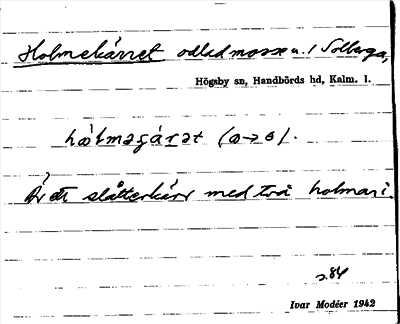 Holmekärret odlad mosse u. 1 Solberga,
Högsby sn, Handbörds hd, Kalm. l.
Är ett slåtterkärr med två holmar i.
s. 84
Ivar Modéer 1942